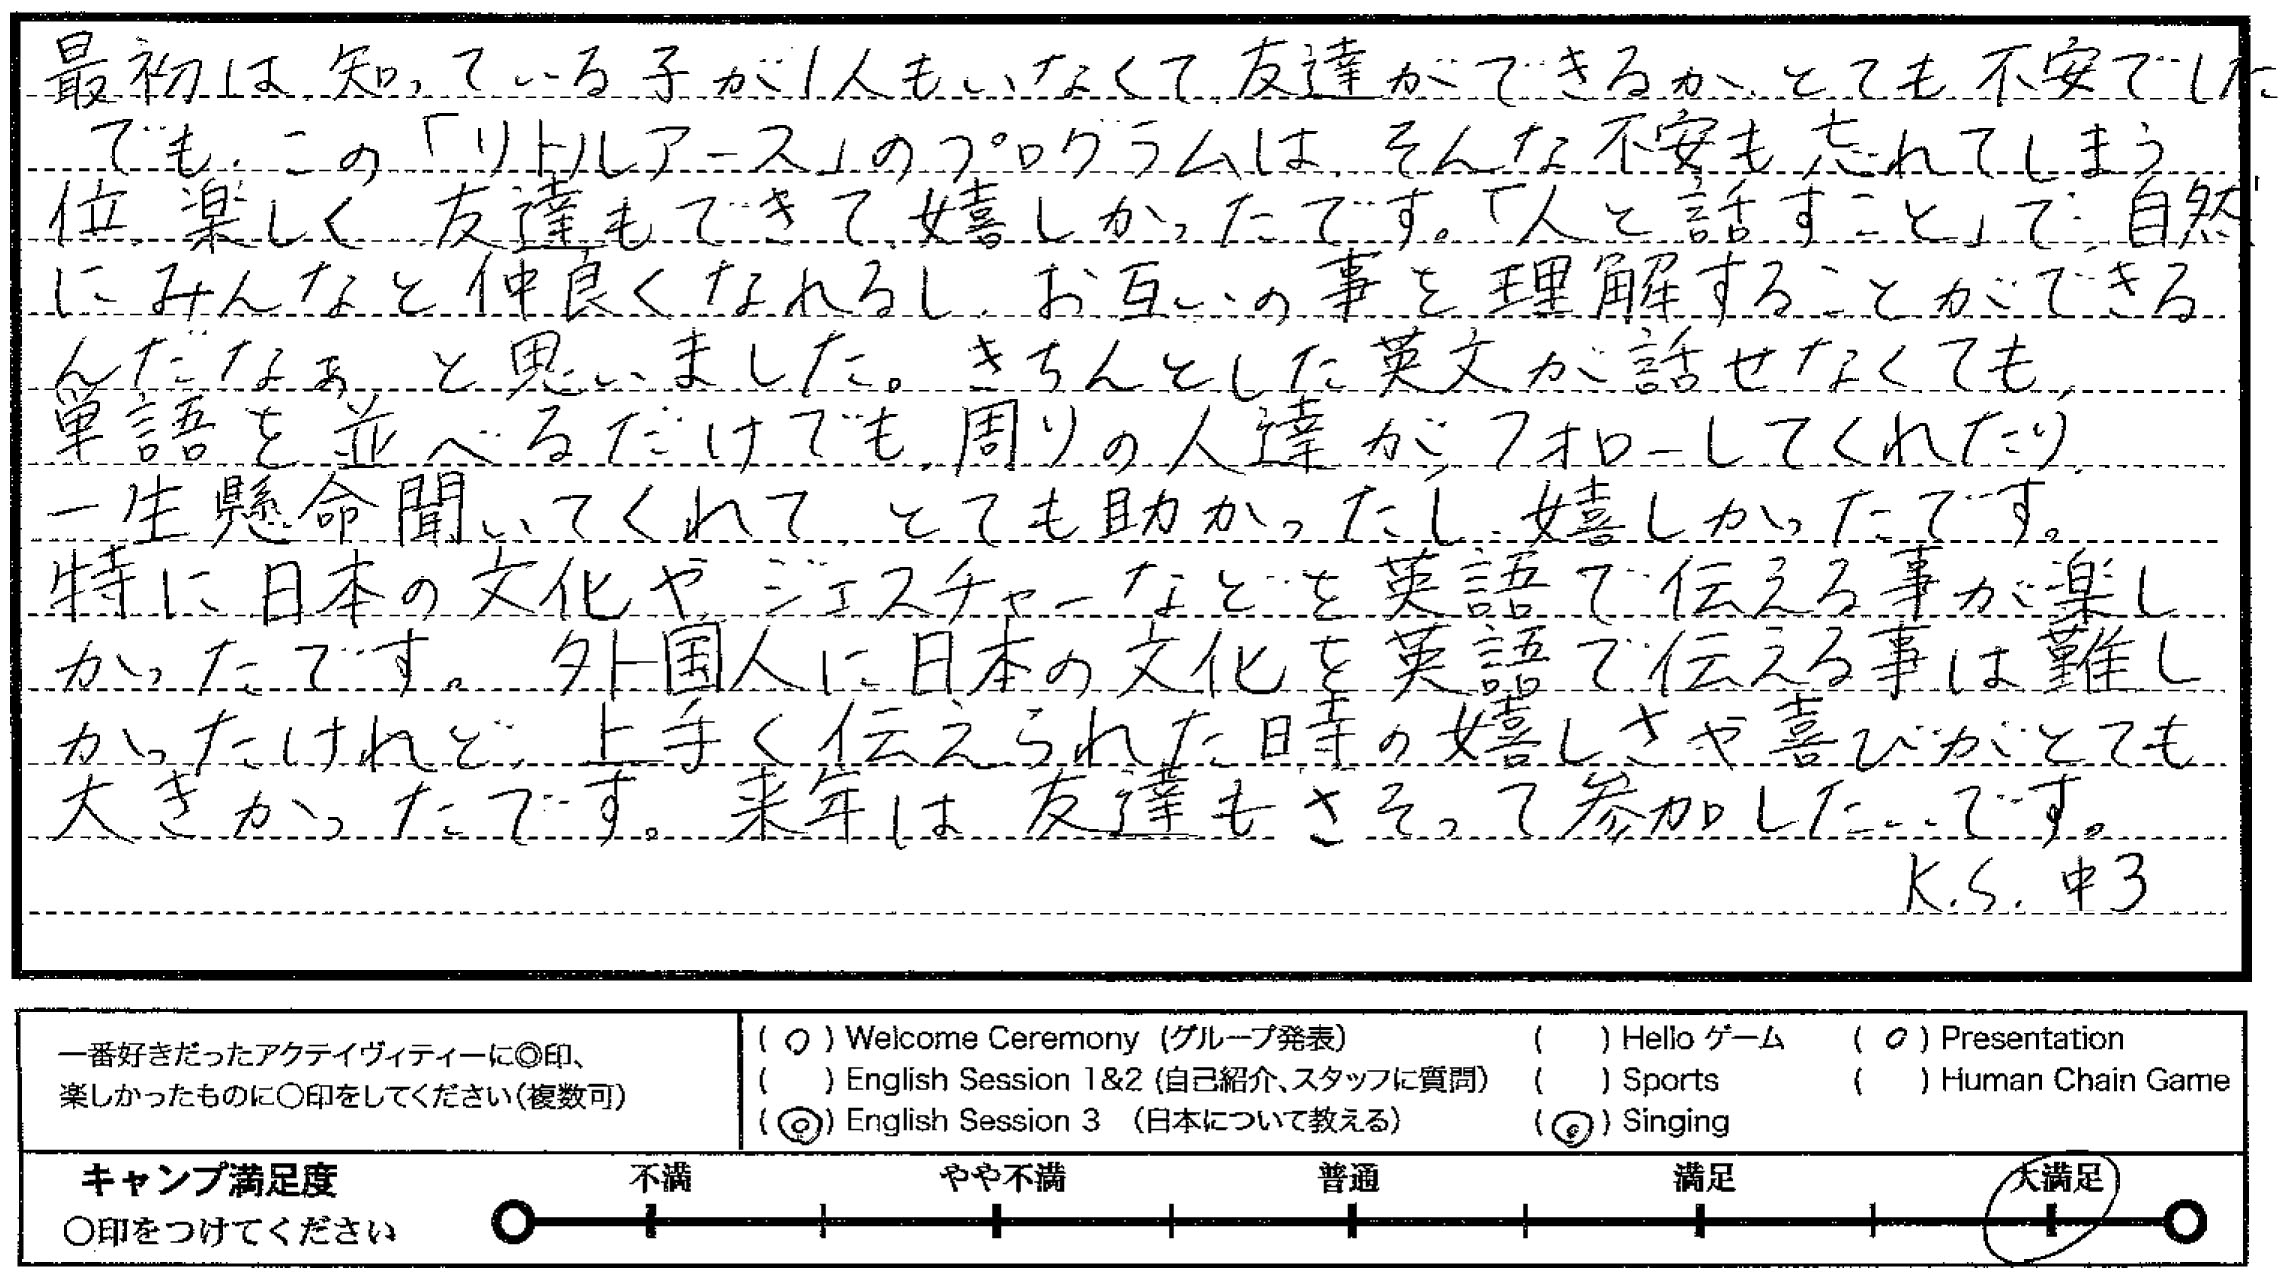 最初は、知っている子が1人もいなくて、友達ができるか、とても不安でした
でも、この「リトルアース」のプログラムは、そんな不安も忘れてしまう
位、楽しく、友達もできて、嬉しかったです。「人と話すこと」で、自然
にみんなと仲良くなれるし、お互いの事を理解することができる
んだなぁ、と思いました。きちんとした英文が話せなくても、
単語を並べるだけでも、周りの人達が、フォローしてくれたり、
一生懸命聞いてくれて、とても助かったし、嬉しかったです。
特に日本の文化や、ジェスチャーなどを英語で伝える事が楽し
かったです。外国人に日本の文化を英語で伝える事は難し
かったけれど、上手く伝えられた時の嬉しさや喜びがとても
大きかったです。来年は、友達もさそって参加したいです。
K.S. 中3
一番好きだったアクテイヴィティーに◎印、
楽しかったものに〇印をしてください(複数可)
(○) Welcome Ceremony (グループ発表) ( ) Hello ゲーム (○) Presentation
( ) English Session 1&2 (自己紹介、スタッフに質問) ( ) Sports ( ) Human Chain Game
(◎) English Session 3 (日本について教える) (◎) Singing
キャンプ満足度 不満 やや不満 普通 満足 大満足
〇印をつけてください